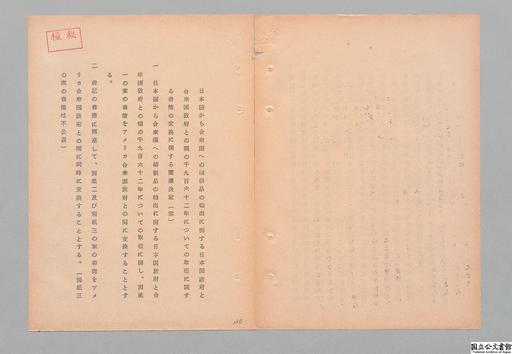 極秘
日本国から合衆国への綿製品の輸出に関する日本国政府と
合衆国政府との間の千九百六十二年についての取極に関す
る書簡の交換に関する閣議決定（案）
一 日本国から合衆国への綿製品の輸出に関する日本国政府と合
衆国政府との間の千九百六十二年についての取極に関し、別紙
一の案の書簡をアメリカ合衆国政府との間に交換することとす
る。
二 前記の書簡に関連して、別紙二及び別紙三の案の書簡をアメ
リカ合衆国政府との間に同時に交換することとする。（別紙三
の案の書簡は不公表）
国立公文書館
National Archives of Japan